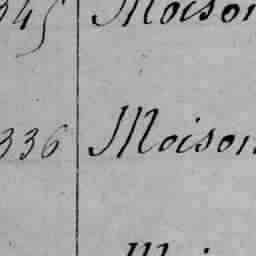 345 Moison
336 Moison